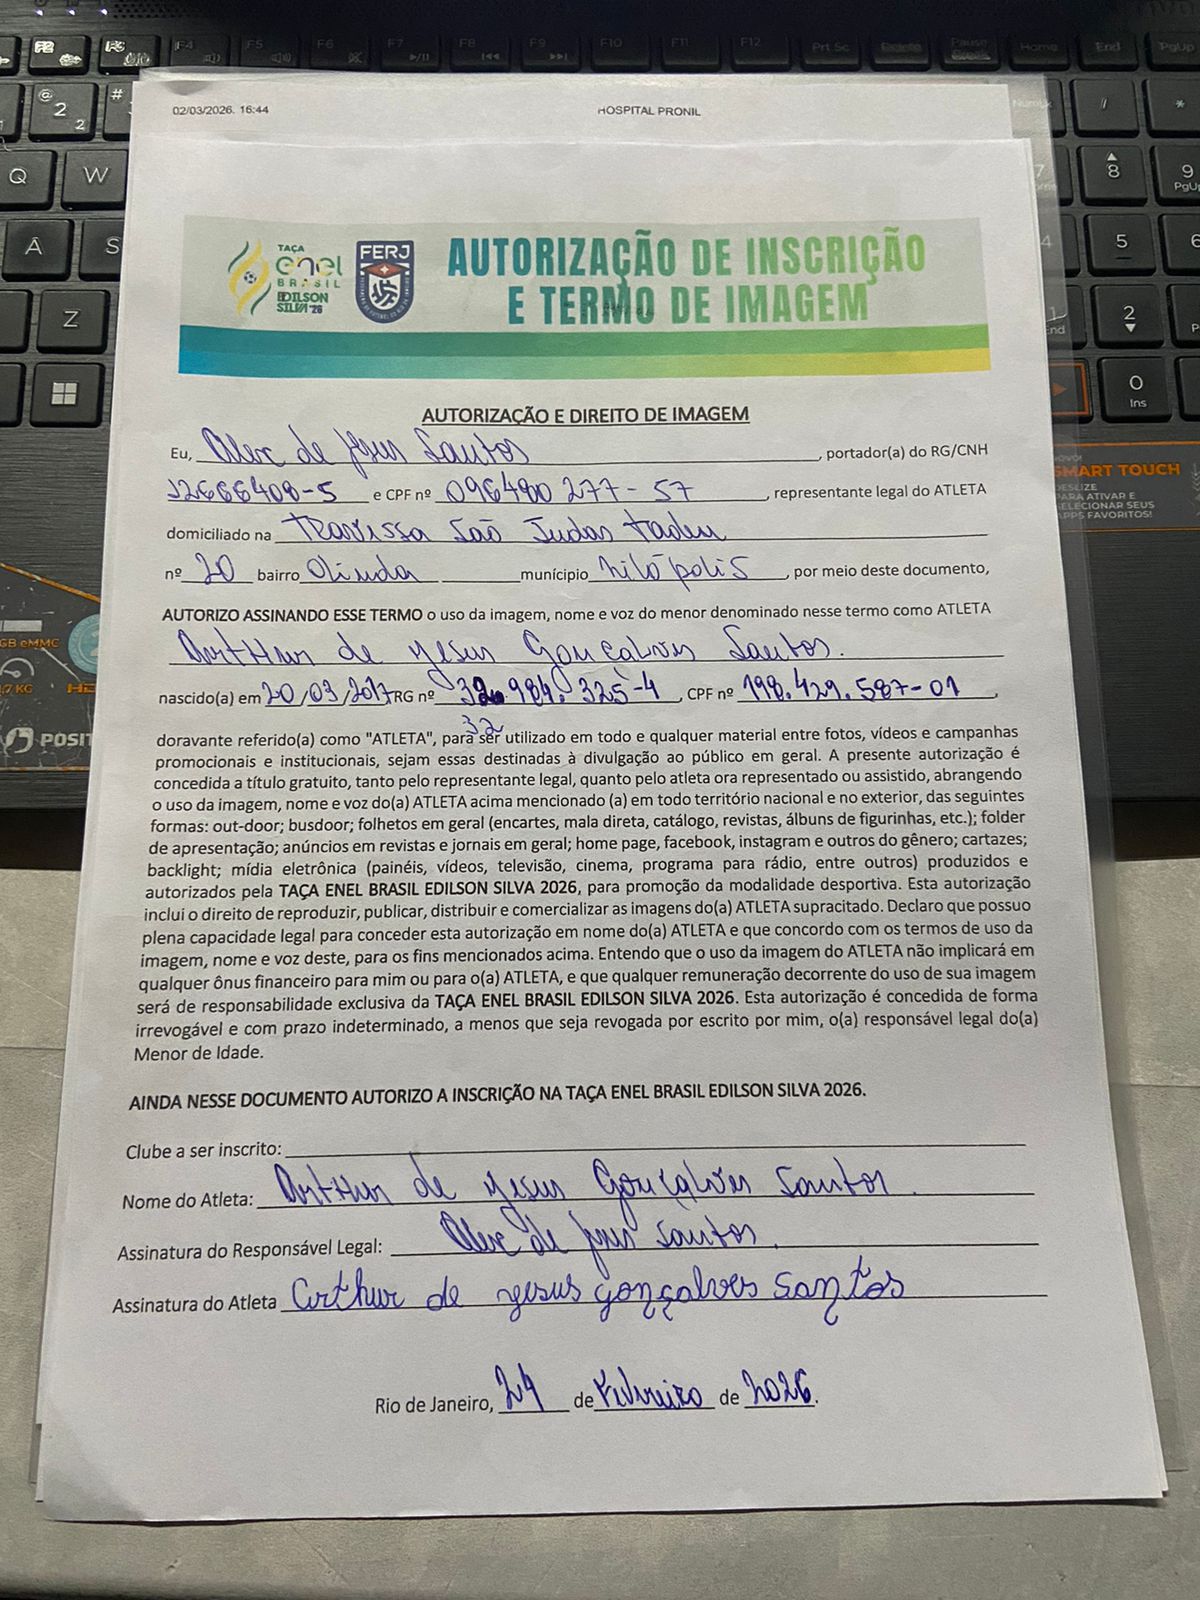 02/03/2026. 16:44 HOSPITAL PRONIL
TAÇA
enel
BRASIL
EDILSON
SILVA '26
FERJ
AUTORIZAÇÃO DE INSCRIÇÃO
E TERMO DE IMAGEM
AUTORIZAÇÃO E DIREITO DE IMAGEM
Eu, Alex de Jesus Santos, portador(a) do RG/CNH
12666408-5 e CPF nº 096480 277-57, representante legal do ATLETA
domiciliado na Travissa São Judas tadeu
nº 20 bairro Olinda município nilópolis, por meio deste documento,
AUTORIZO ASSINANDO ESSE TERMO o uso da imagem, nome e voz do menor denominado nesse termo como ATLETA
Arthur de Yesus Gonçalves Santos.
nascido(a) em 20/03/2017 RG nº 32.984.325-4, CPF nº 198.429.587-01,
32
doravante referido(a) como "ATLETA", para ser utilizado em todo e qualquer material entre fotos, vídeos e campanhas
promocionais e institucionais, sejam essas destinadas à divulgação ao público em geral. A presente autorização é
concedida a título gratuito, tanto pelo representante legal, quanto pelo atleta ora representado ou assistido, abrangendo
o uso da imagem, nome e voz do(a) ATLETA acima mencionado (a) em todo território nacional e no exterior, das seguintes
formas: out-door; busdoor; folhetos em geral (encartes, mala direta, catálogo, revistas, álbuns de figurinhas, etc.); folder
de apresentação; anúncios em revistas e jornais em geral; home page, facebook, instagram e outros do gênero; cartazes;
backlight; mídia eletrônica (painéis, vídeos, televisão, cinema, programa para rádio, entre outros) produzidos e
autorizados pela TAÇA ENEL BRASIL EDILSON SILVA 2026, para promoção da modalidade desportiva. Esta autorização
inclui o direito de reproduzir, publicar, distribuir e comercializar as imagens do(a) ATLETA supracitado. Declaro que possuo
plena capacidade legal para conceder esta autorização em nome do(a) ATLETA e que concordo com os termos de uso da
imagem, nome e voz deste, para os fins mencionados acima. Entendo que o uso da imagem do ATLETA não implicará em
qualquer ônus financeiro para mim ou para o(a) ATLETA, e que qualquer remuneração decorrente do uso de sua imagem
será de responsabilidade exclusiva da TAÇA ENEL BRASIL EDILSON SILVA 2026. Esta autorização é concedida de forma
irrevogável e com prazo indeterminado, a menos que seja revogada por escrito por mim, o(a) responsável legal do(a)
Menor de Idade.
AINDA NESSE DOCUMENTO AUTORIZO A INSCRIÇÃO NA TAÇA ENEL BRASIL EDILSON SILVA 2026.
Clube a ser inscrito:
Nome do Atleta: Arthur de Yesus Gonçalves Santos.
Assinatura do Responsável Legal: Alex de Jesus Santos.
Assinatura do Atleta Arthur de yesus gonçalves Santos
Rio de Janeiro, 24 de Fevereiro de 2026.
SMART TOUCH
DESLIZE
PARA ATIVAR E
SELECIONAR SEUS
APPS FAVORITOS!